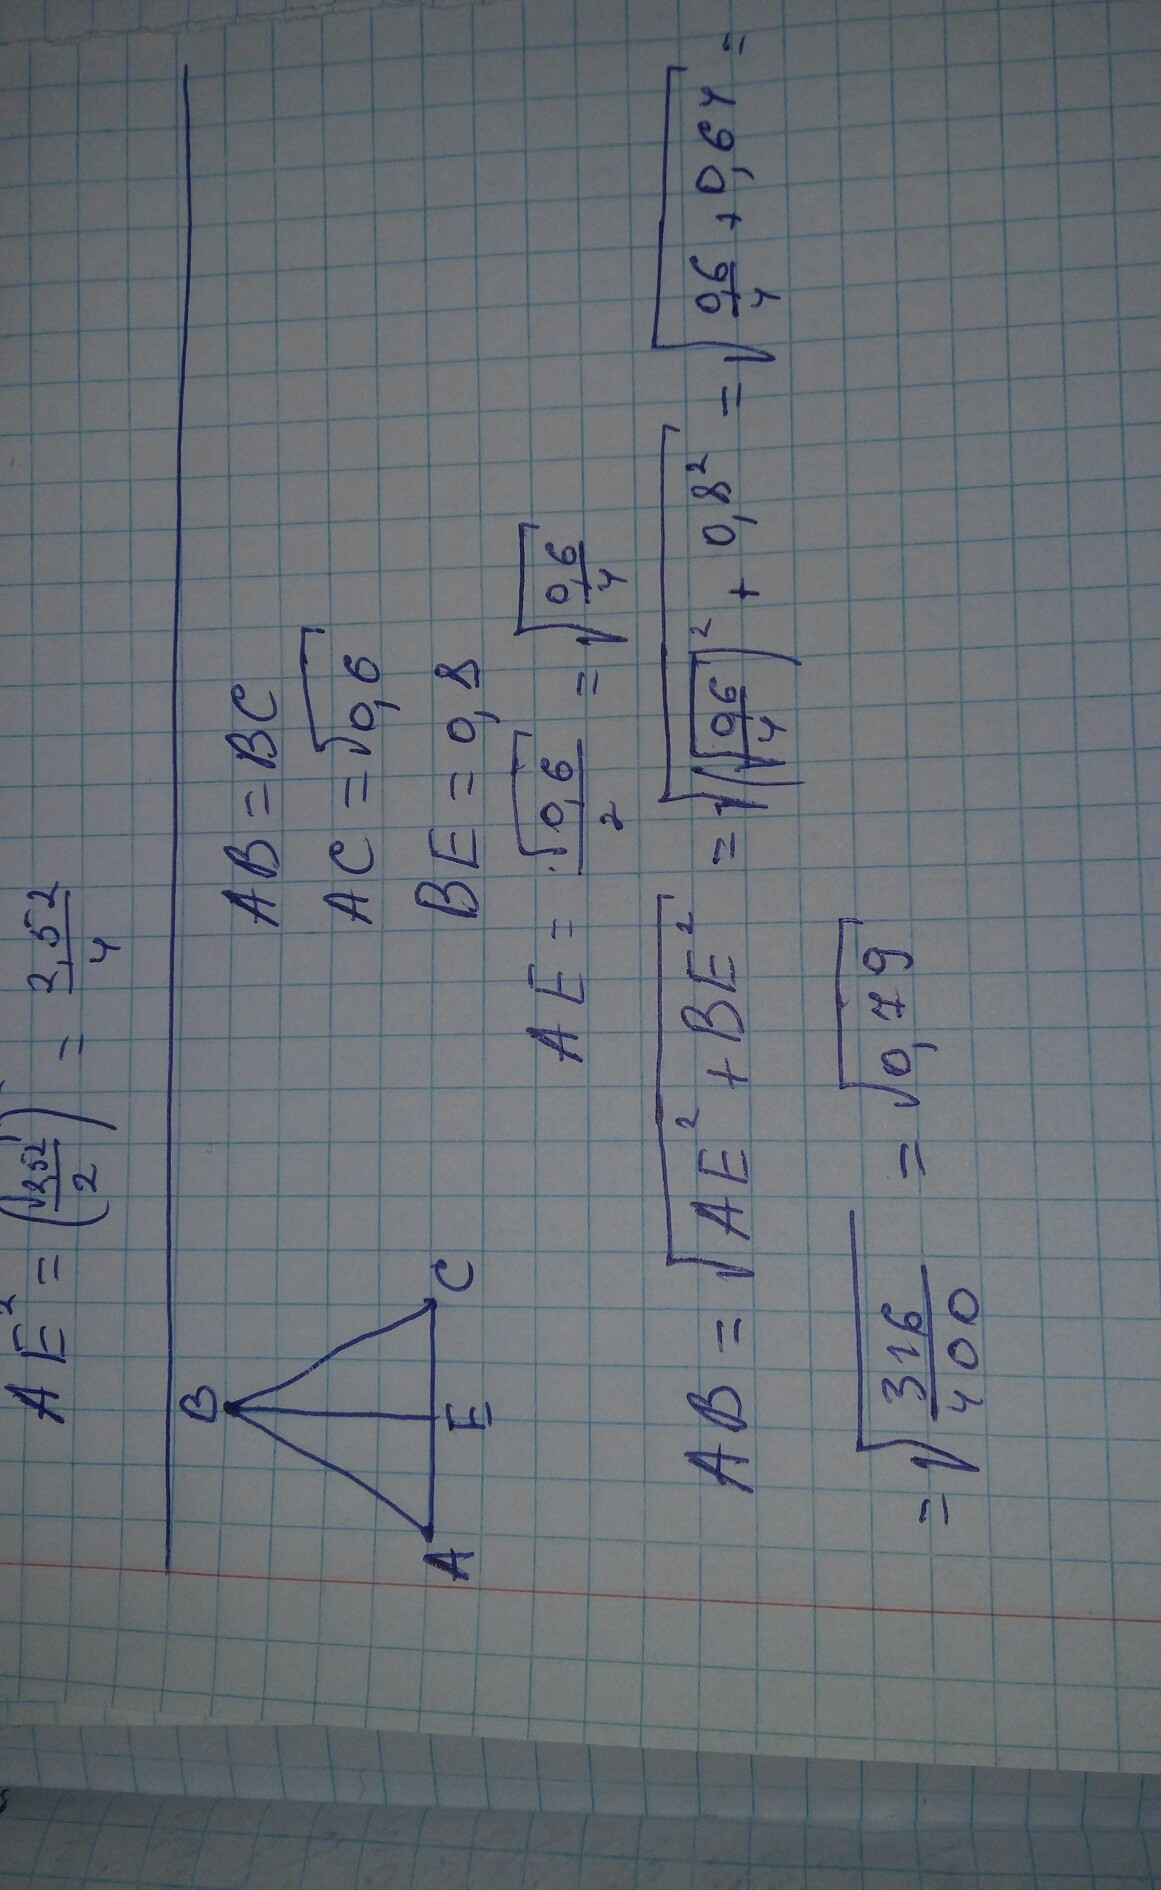 AE² = (√2,52/2)² = 2,52/4
AB = BC
AC = √0,6
BE = 0,8
B
A E C
AE = √0,6/2 = √(0,6/4)
AB = √(AE² + BE²) = √((√(0,6/4))² + 0,8²) = √(0,6/4 + 0,64) =
= √(316/400) = √0,79